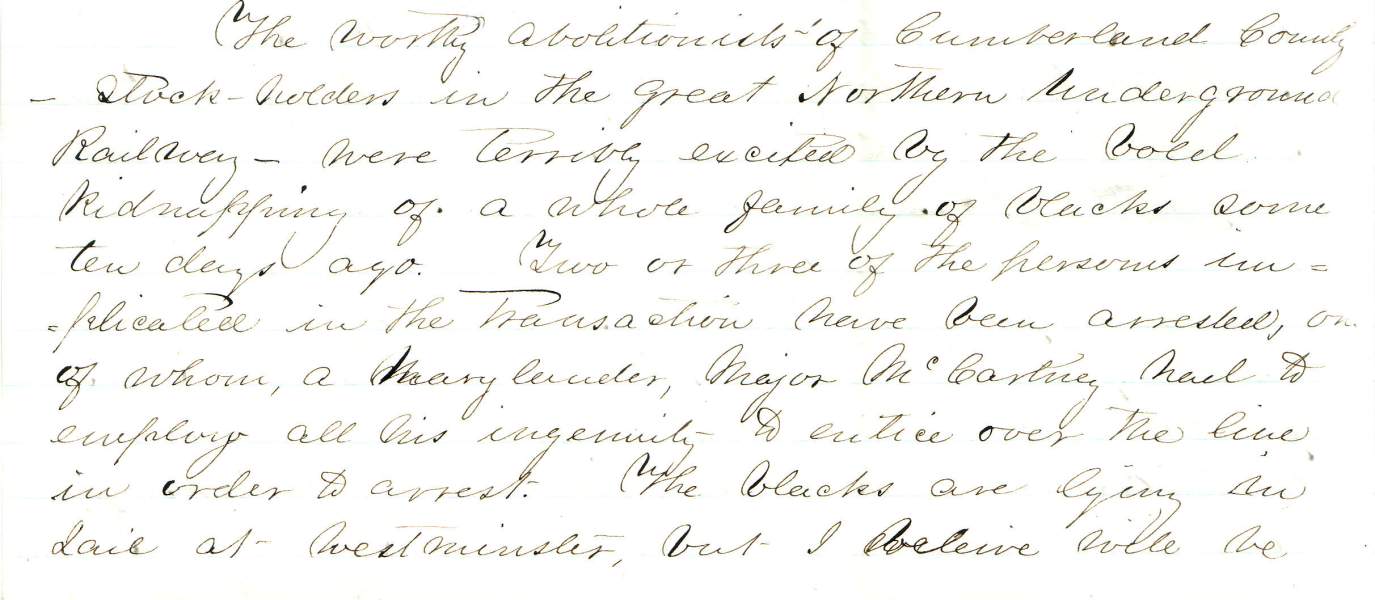 The worthy abolitionists' of Cumberland County
- Stock-holders in the great Northern Underground
Railway - were terribly excited by the bold
kidnapping of a whole family of blacks some
ten days ago. Two or three of the persons im=
=plicated in the transaction have been arrested, on
of whom, a Marylander, Major McCartney had to
employ all his ingenuity to entice over the line
in order to arrest. The blacks are lying in
Jail at Westminster, but I beleive will be